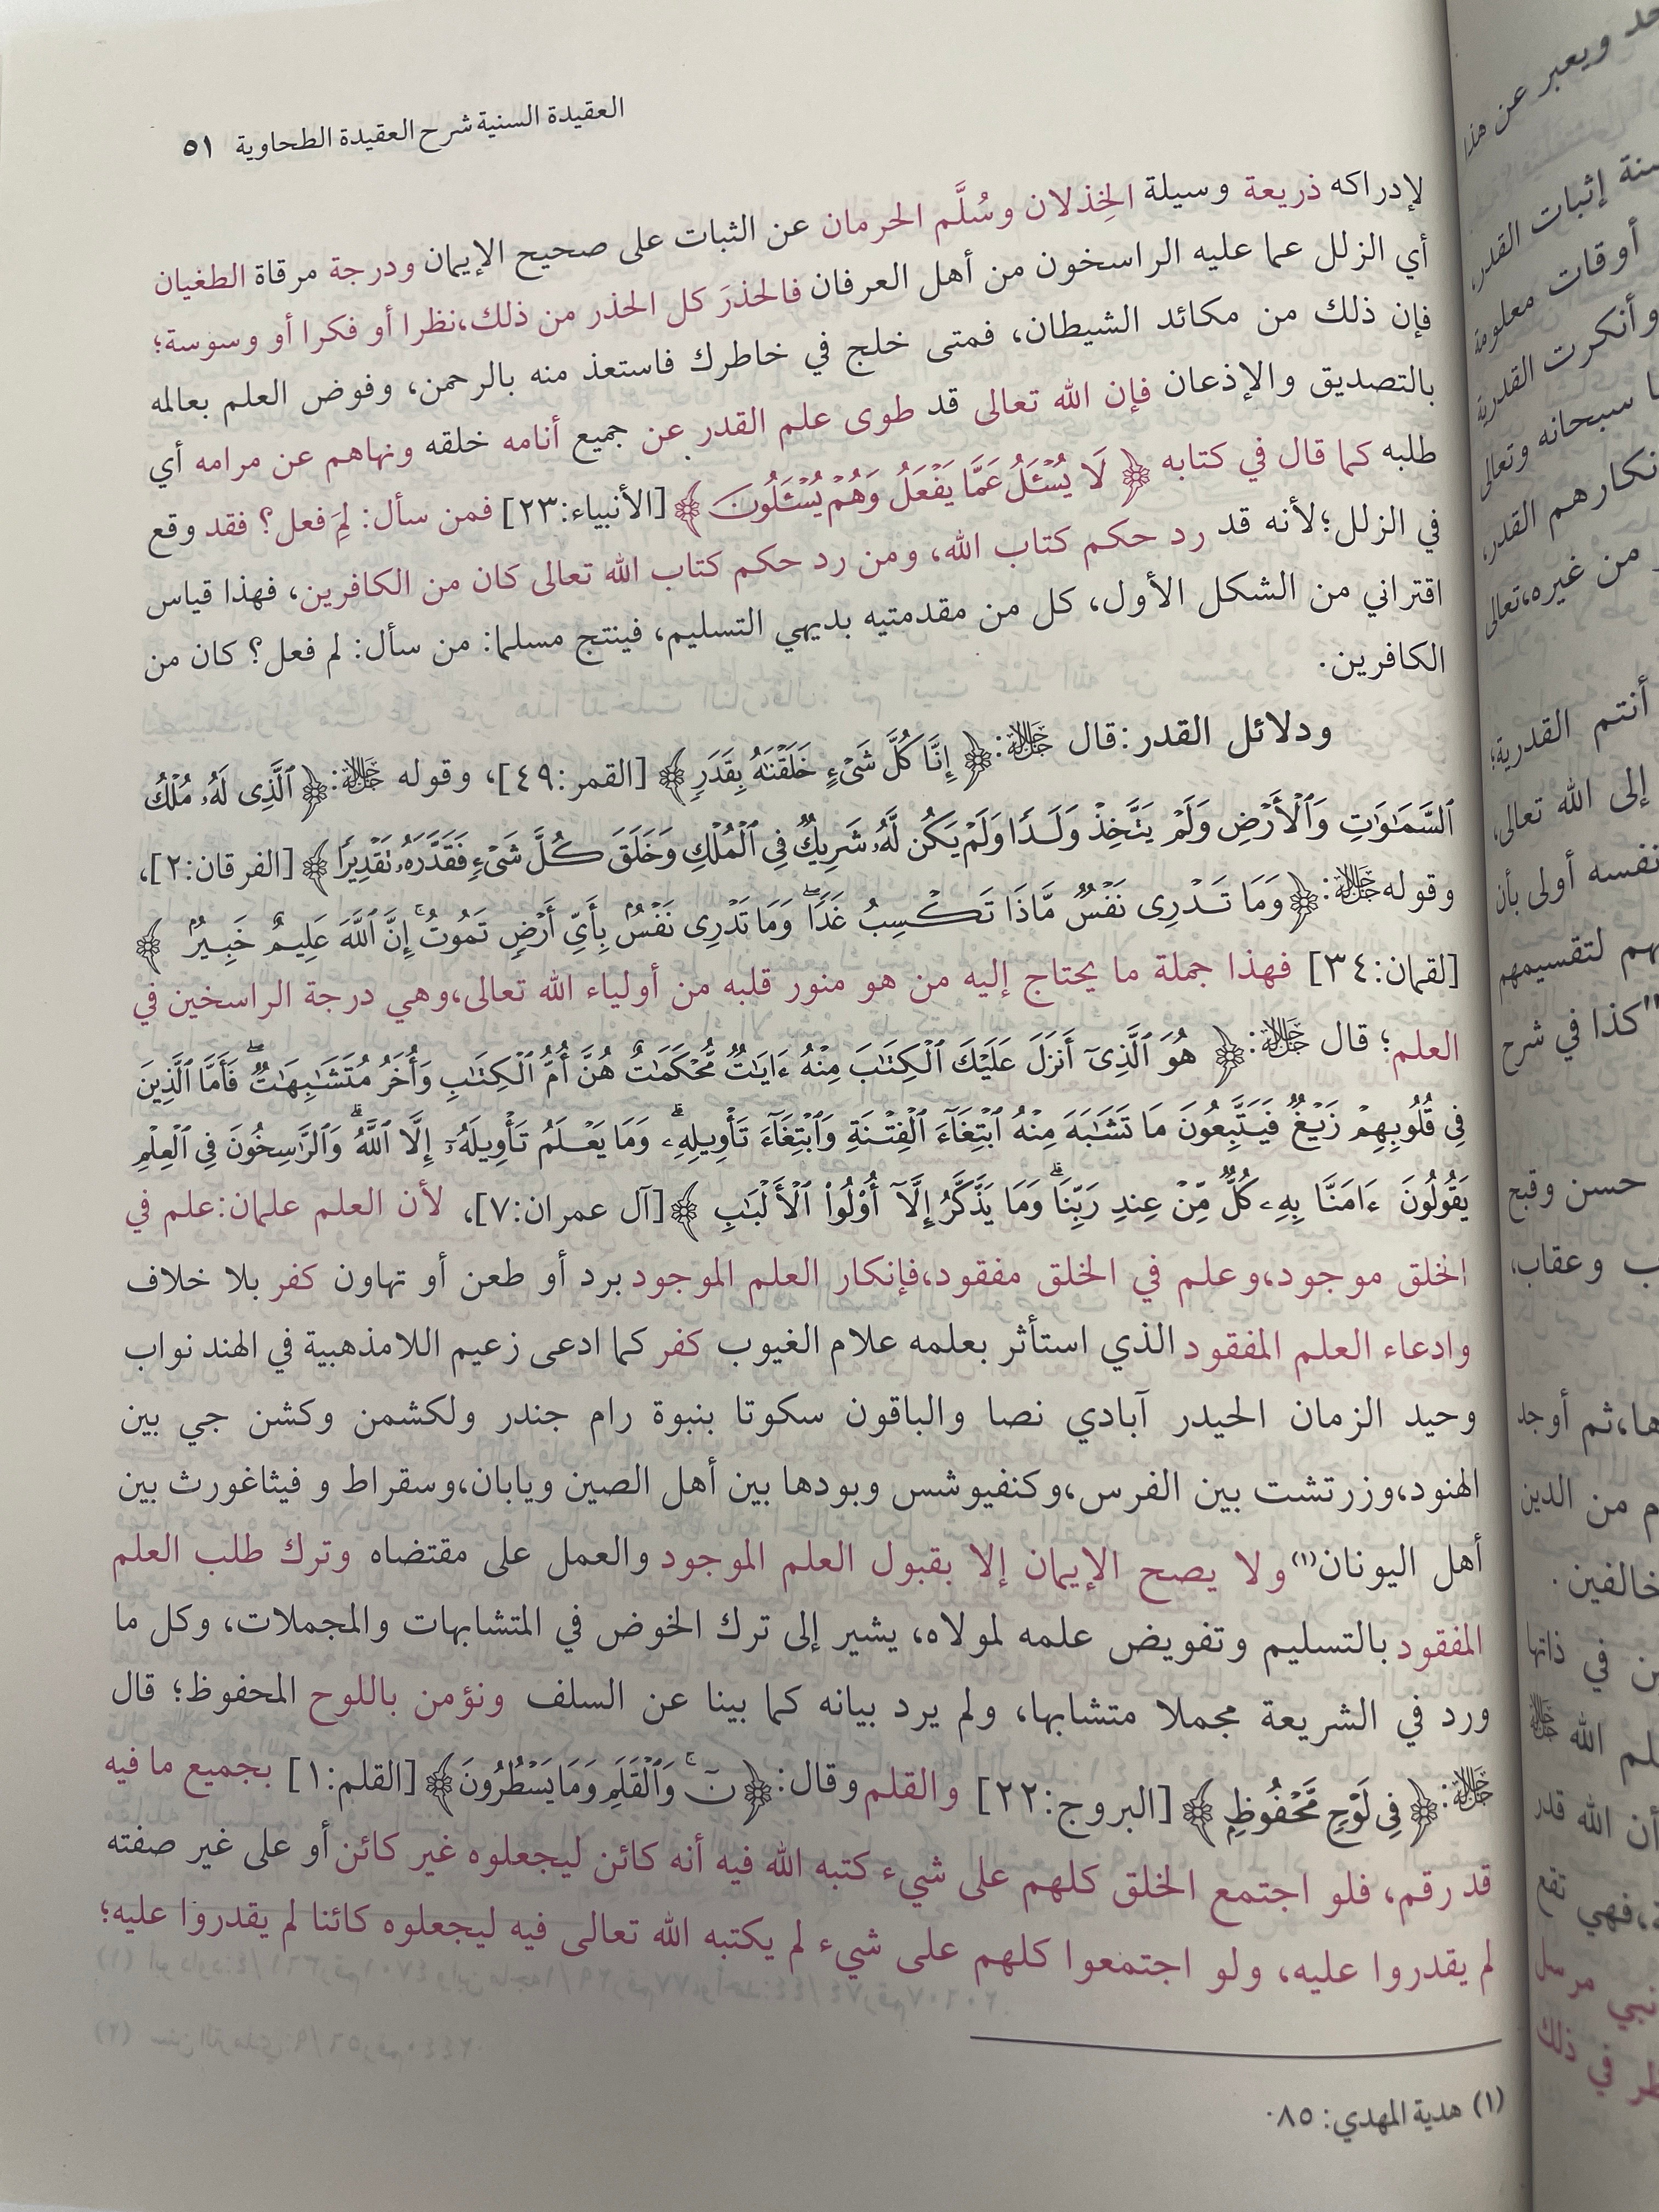 العقيدة السنية شرح العقيدة الطحاوية ٥١
لإدراكه ذريعة وسيلة الخِذلان وسُلَّم الحرمان عن الثبات على صحيح الإيمان ودرجة مرقاة الطغيان
أي الزلل عما عليه الراسخون من أهل العرفان فالحذرَ كل الحذر من ذلك،نظرا أو فكرا أو وسوسة؛
فإن ذلك من مكائد الشيطان، فمتى خلج في خاطرك فاستعذ منه بالرحمن، وفوض العلم بعالمه
بالتصديق والإذعان فإن الله تعالى قد طوى علم القدر عن جميع أنامه خلقه ونهاهم عن مرامه أي
طلبه كما قال في كتابه ﴿ لَا يُسْـَٔلُ عَمَّا يَفْعَلُ وَهُمْ يُسْـَٔلُونَ ﴾ [الأنبياء:٢٣] فمن سأل: لِمَ فعل؟ فقد وقع
في الزلل؛لأنه قد رد حكم كتاب الله، ومن رد حكم كتاب الله تعالى كان من الكافرين، فهذا قياس
اقتراني من الشكل الأول، كل من مقدمتيه بديهي التسليم، فينتج مسلما: من سأل: لم فعل؟ كان من
الكافرين.
ودلائل القدر:قال ﷻ:﴿ إِنَّا كُلَّ شَىْءٍ خَلَقْنَٰهُ بِقَدَرٍ ﴾ [القمر:٤٩]، وقوله ﷻ:﴿ ٱلَّذِى لَهُۥ مُلْكُ
ٱلسَّمَٰوَٰتِ وَٱلْأَرْضِ وَلَمْ يَتَّخِذْ وَلَدًا وَلَمْ يَكُن لَّهُۥ شَرِيكٌ فِى ٱلْمُلْكِ وَخَلَقَ كُلَّ شَىْءٍ فَقَدَّرَهُۥ تَقْدِيرًا ﴾ [الفرقان:٢]،
وقولهﷻ:﴿وَمَا تَدْرِى نَفْسٌ مَّاذَا تَكْسِبُ غَدًا ۖ وَمَا تَدْرِى نَفْسٌۢ بِأَىِّ أَرْضٍ تَمُوتُ ۚ إِنَّ ٱللَّهَ عَلِيمٌ خَبِيرٌۢ ﴾
[لقمان:٣٤] فهذا جملة ما يحتاج إليه من هو منور قلبه من أولياء الله تعالى،وهي درجة الراسخين في
العلم؛ قال ﷻ:﴿ هُوَ ٱلَّذِىٓ أَنزَلَ عَلَيْكَ ٱلْكِتَٰبَ مِنْهُ ءَايَٰتٌ مُّحْكَمَٰتٌ هُنَّ أُمُّ ٱلْكِتَٰبِ وَأُخَرُ مُتَشَٰبِهَٰتٌ ۖ فَأَمَّا ٱلَّذِينَ
فِى قُلُوبِهِمْ زَيْغٌ فَيَتَّبِعُونَ مَا تَشَٰبَهَ مِنْهُ ٱبْتِغَآءَ ٱلْفِتْنَةِ وَٱبْتِغَآءَ تَأْوِيلِهِۦ ۗ وَمَا يَعْلَمُ تَأْوِيلَهُۥٓ إِلَّا ٱللَّهُ ۗ وَٱلرَّٰسِخُونَ فِى ٱلْعِلْمِ
يَقُولُونَ ءَامَنَّا بِهِۦ كُلٌّ مِّنْ عِندِ رَبِّنَا ۗ وَمَا يَذَّكَّرُ إِلَّآ أُو۟لُوا۟ ٱلْأَلْبَٰبِ ﴾[آل عمران:٧]، لأن العلم علمان:علم في
الخلق موجود،وعلم في الخلق مفقود،فإنكار العلم الموجود برد أو طعن أو تهاون كفر بلا خلاف
وادعاء العلم المفقود الذي استأثر بعلمه علام الغيوب كفر كما ادعى زعيم اللامذهبية في الهند نواب
وحيد الزمان الحيدر آبادي نصا والباقون سكوتا بنبوة رام جندر ولكشمن وكشن جي بين
الهنود،وزرتشت بين الفرس،وكنفيوشس وبودها بين أهل الصين ويابان،وسقراط و فيثاغورث بين
أهل اليونان(١)ولا يصح الإيمان إلا بقبول العلم الموجود والعمل على مقتضاه وترك طلب العلم
المفقود بالتسليم وتفويض علمه لمولاه، يشير إلى ترك الخوض في المتشابهات والمجملات، وكل ما
ورد في الشريعة مجملا متشابها، ولم يرد بيانه كما بينا عن السلف ونؤمن باللوح المحفوظ؛ قال
ﷻ:﴿فِى لَوْحٍ مَّحْفُوظٍۭ ﴾ [البروج:٢٢] والقلم وقال:﴿نٓ ۚ وَٱلْقَلَمِ وَمَا يَسْطُرُونَ﴾ [القلم:١] بجميع ما فيه
قد رقم، فلو اجتمع الخلق كلهم على شيء كتبه الله فيه أنه كائن ليجعلوه غير كائن أو على غير صفته
لم يقدروا عليه، ولو اجتمعوا كلهم على شيء لم يكتبه الله تعالى فيه ليجعلوه كائنا لم يقدروا عليه؛
(١) هدية المهدي: ٨٥.
ويعبر عن هذا
إثبات القدر،
أوقات معلومة
وأنكرت القدرية
سبحانه وتعالى
نكارهم القدر،
من غيره،تعالى
أنتم القدرية؛
إلى الله تعالى،
نفسه أولى بأن
لتقسيمهم
"كذا في شرح
حسن وقبح
وعقاب،
ها،ثم أوجد
من الدين
خالفين.
في ذاتها
الله ﷻ
أن الله قدر
،فهي تقع
نبي مرسل
في ذلك